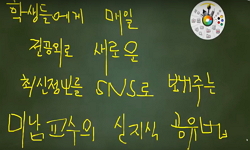 학생들에게 매일
전공외로 새로운
최신정보를 SNS로 보내주는
미남교수의 신지식 공유법